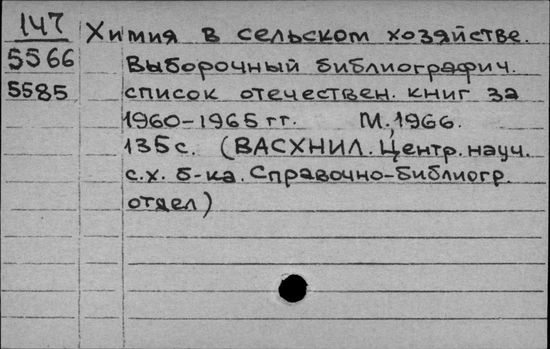 147 Химия в сельском хозяйстве.
5566 Выборочный библиографич.
5585 список отечествен. книг за
1960-1965 гг. М., 1966.
135 с. (ВАСХНИЛ. Центр. науч.
с.х. б-ка. Справочно-библиогр.
отдел)